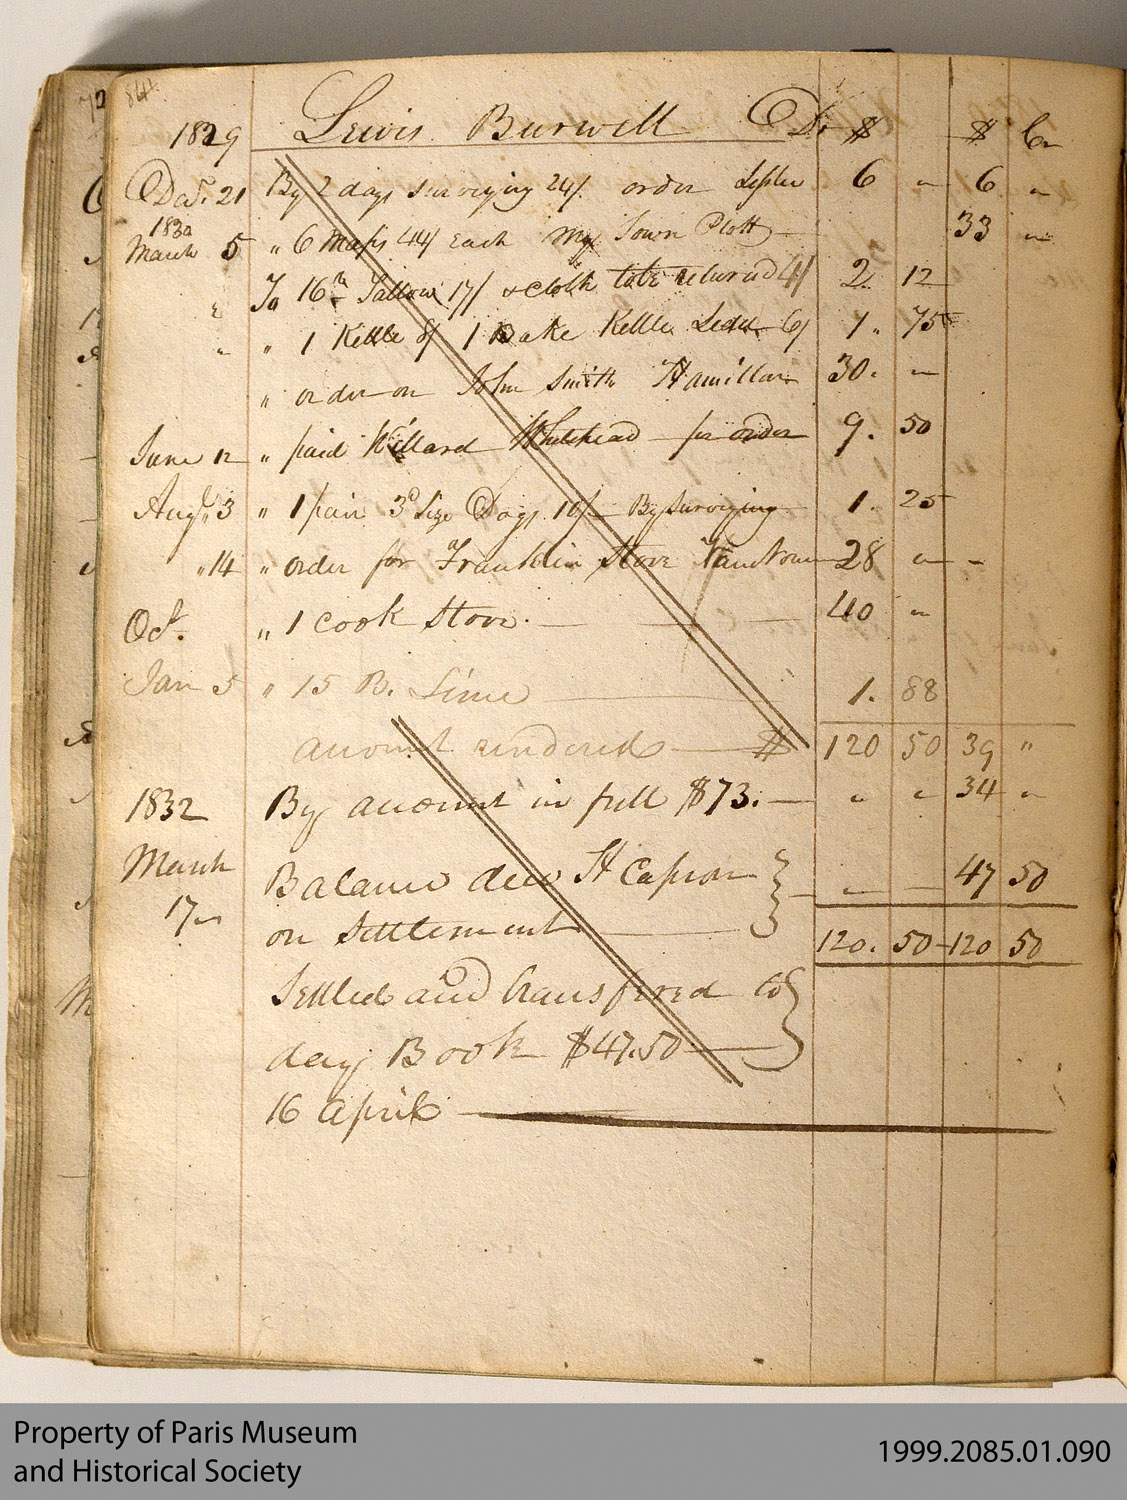 84
1829 Lewis Burwell Dr $ $ Cr
Dec. 21 By 2 days surveying 24/ order 6 " 6 "
1830
March 5 " 6 Maps 44/ Each my Town Plott 33 "
" To 16 Tallow 17/ & cloth to be returned 4/ 2. 12
" " 1 Kettle 8/ 1 Bake Kettle 6/ 1. 75
" order on John Smith Hamilton 30. "
June 12 " paid Willard Whitehead per order 9. 50
Augt 3 " 1 pair 3d Size Dogs 10/ By surveying 1. 25
" 14 " order for Franklin Stove 28 "
Oct. " 1 cook Stove. 40 "
Jan 5 " 15 B. Lime 1. 88
amount rendered $ 120 50 39 "
1832 By amount in full $73. " " 34 "
March Balance due H Capron 47 50
17 on Settlement 120. 50 120 50
Settled and transfered to
day Book $47.50
16 april
Property of Paris Museum
and Historical Society
1999.2085.01.090